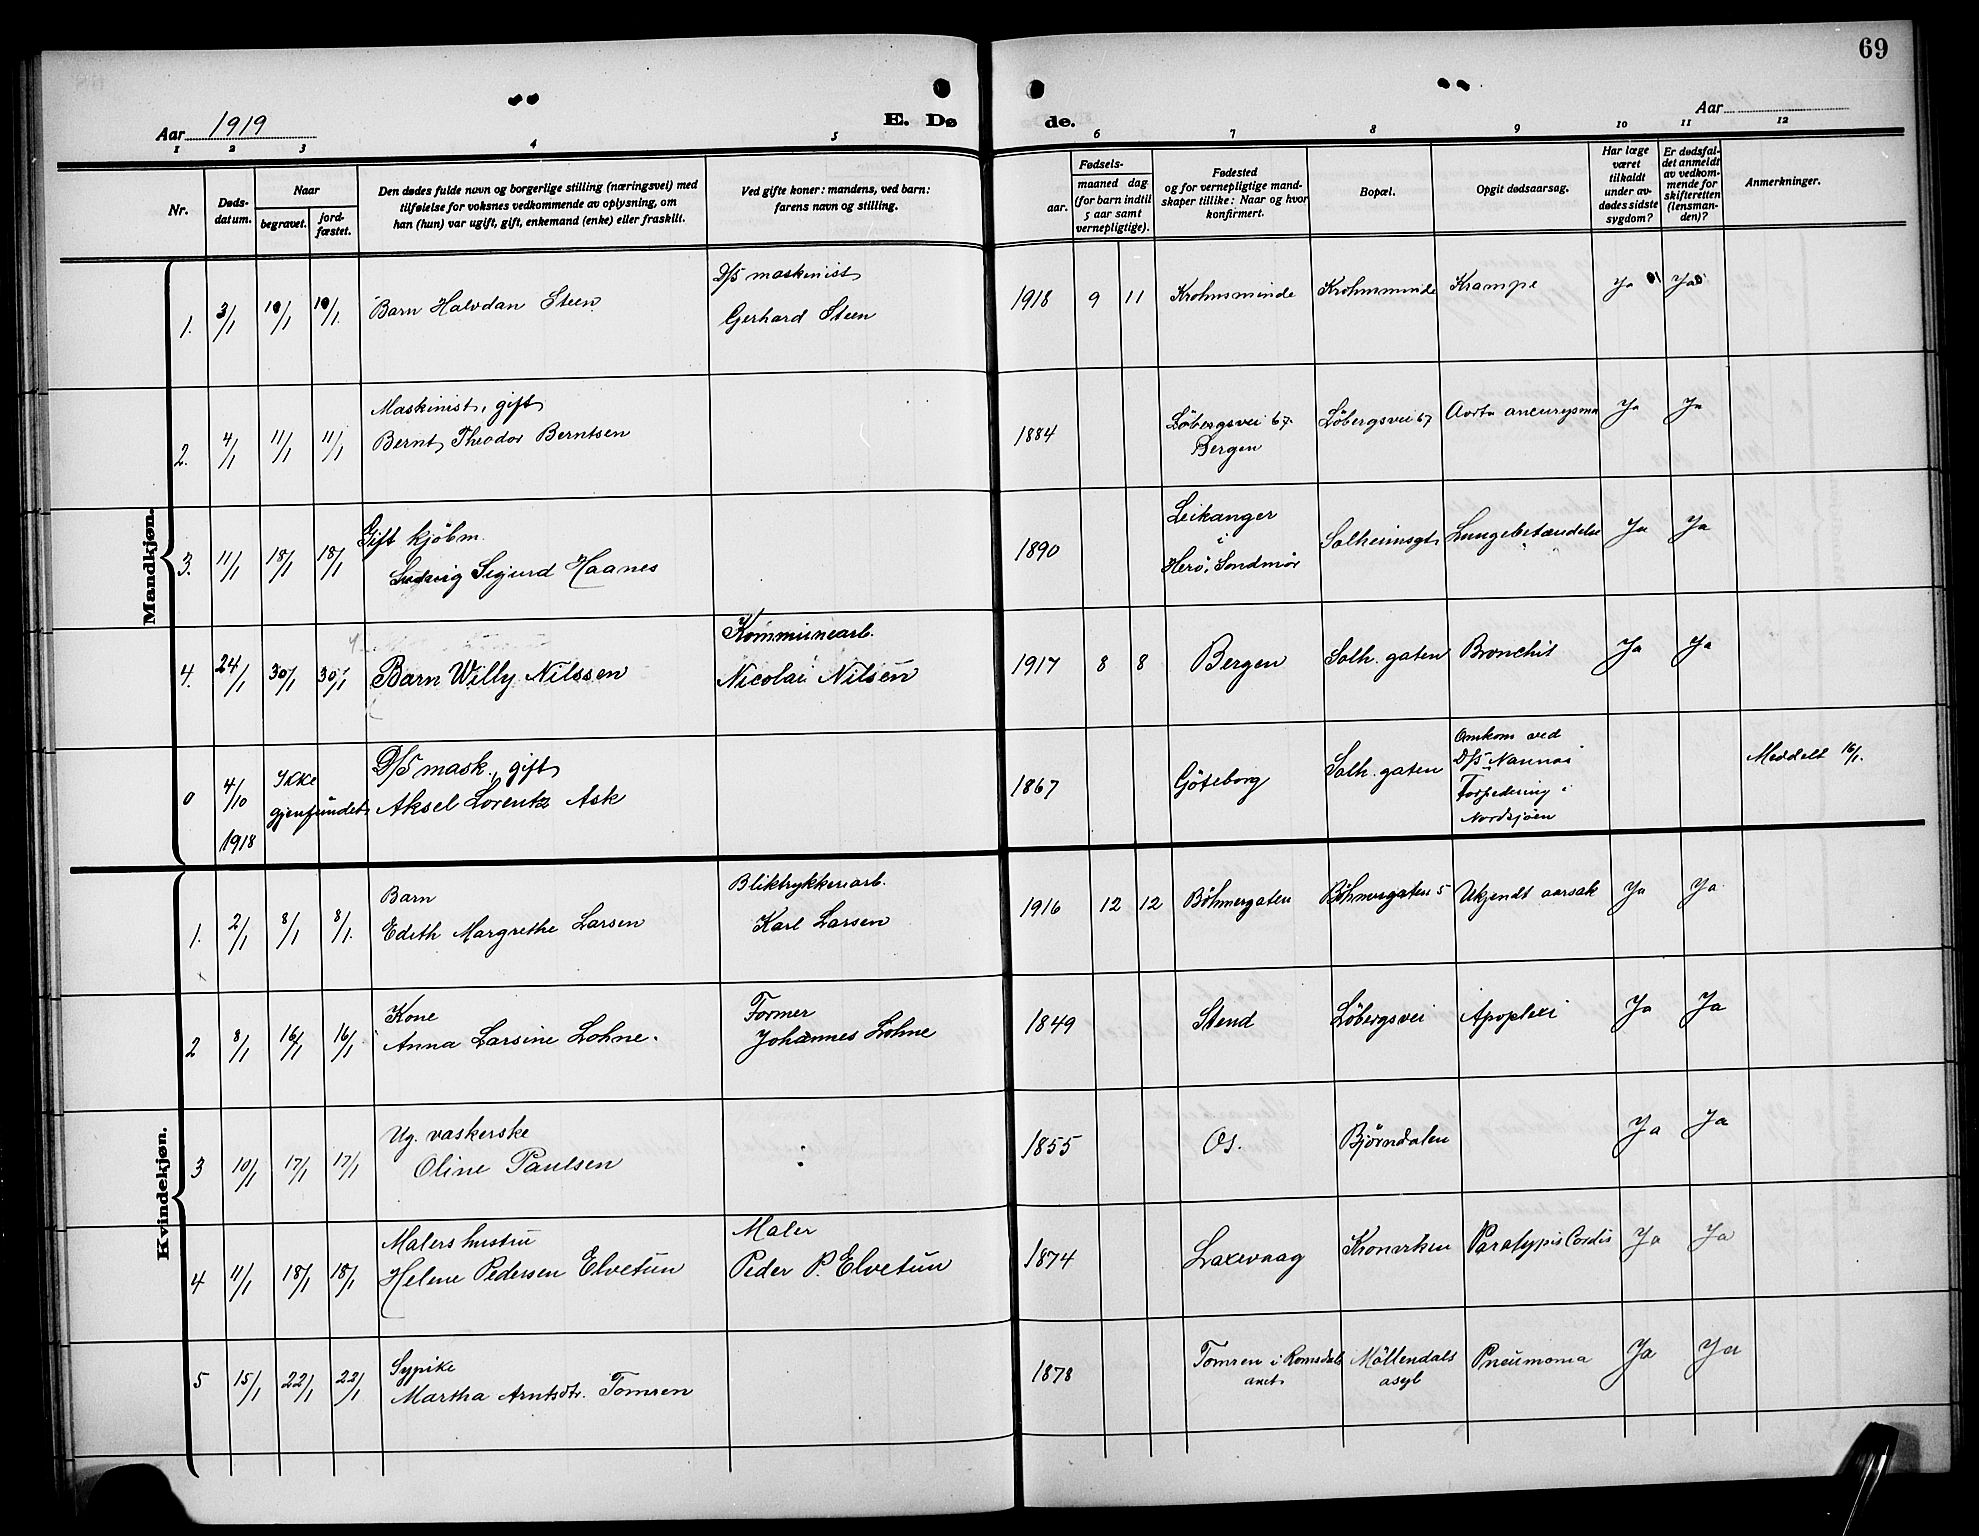 69
Aar 1919
E. Dø de.
Aar
1 2 3 4 5 6 7 8 9 10 11 12
Nr.
Døds-
datum.
Naar
begravet.
jord-
fæstet.
Den dødes fulde navn og borgerlige stilling (næringsvei) med
tilføielse for voksnes vedkommende av oplysning, om
han (hun) var ugift, gift, enkemand (enke) eller fraskilt.
Ved gifte koner: mandens, ved barn:
farens navn og stilling.
Fødsels-
aar.
maaned dag
(for barn indtil
5 aar samt
vernepligtige).
Fødested
og for vernepligtige mand-
skaper tillike: Naar og hvor
konfirmert.
Bopæl.
Opgit dødsaarsag.
Har læge
været
tilkaldt
under av-
dødes sidste
sygdom?
Er dødsfal-
det anmeldt
av vedkom-
mende for
skifteretten
(lensman-
den)?
Anmerkninger.
Mandkjøn.
D/S maskinist
1. 3/1 10/1 10/1. Barn Halvdan Steen Gerhard Steen 1918 9 11 Krohnsminde Krohnsminde Krampe Ja Ja
Maskinist, gift
2. 4/1 11/1 11/1 Bernt Theodor Berntsen 1884 Löbergsvei 67. Löbergsvei 67 Aorta aneurysma Ja Ja
Bergen
Gift kjöbm. Leikanger
3. 11/1 18/1 18/1 Ludvig Sigurd Haanes 1890 i Solheimsgt. Lungebetændelse Ja Ja
Herö, Søndmör
Kommunearb.
4. 24/1 30/1 30/1 Barn Willy Nilssen Nicolai Nilsen 1917 8 8 Bergen Solh. gaten Bronchit Ja Ja
D/S mask., gift Omkom ved
0 4/10 Ikke Aksel Lorentz Ask 1867 Göteborg Solh. gaten D/S Nannas Meddelt 16/1.
gjenfundet. Torpedering i
1918 Nordsjøen
Kvindekjøn.
Barn Bliktrykkeriarb.
1. 2/1 8/1 8/1. Edith Margrethe Larsen Karl Larsen 1916 12 12 Böhmergaten Böhmergaten 5 Ukjendt aarsak Ja Ja
Kone Former
2 8/1 16/1 16/1 Anna Larsine Lohne. Johannes Lohne 1849 Stend Löbergsvei Apoplexi Ja Ja
Ug. vaskerske
3 10/1 17/1 17/1 Oline Paulsen 1855 Os. Bjørndalen Ja Ja
Malers hustru Maler
4 11/1 18/1 18/1 Helene Pedersen Elvetun Peder P. Elvetun 1874 Laxevaag Kronerken Paralypsis Cordis Ja Ja
Sypike
5 15/1 22/1 22/1 Martha Arntsdtr. Tomren 1878 Tomren i Romsdals Möllendals Pneumonia Ja Ja
amt. asyl